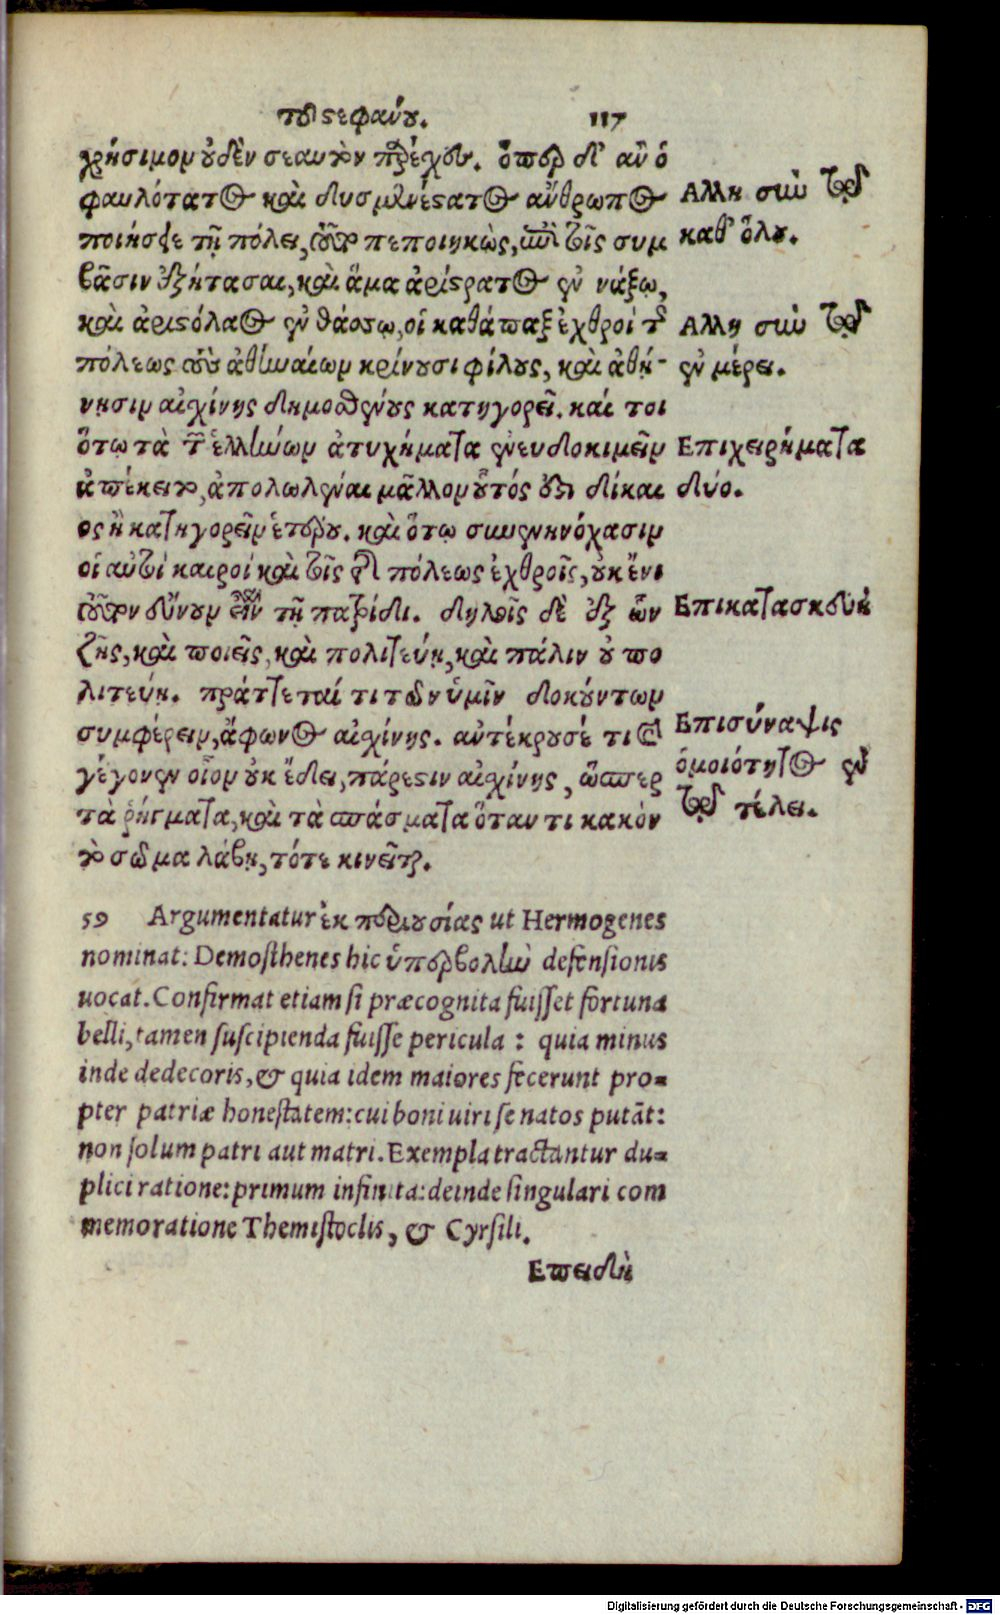 τοῦ στεφάνου. 117
χρήσιμον οὐδὲν σεαυτὸν παρέχων. ὅπερ δ' ἂν ὁ
φαυλότατος καὶ δυσμενέστατος ἄνθρωπος
ποιήσειε τῇ πόλει, τοῦτο πεποιηκὼς, ἐπὶ τοῖς συμ
βᾶσιν ἐξήτασαι, καὶ ἅμα ἀρίστρατος ἐν νάξῳ,
καὶ ἀριστόλαος ἐν θάσῳ, οἱ καθάπαξ ἐχθροὶ τῆς
πόλεως τοὺς ἀθηναίων κρίνουσι φίλους, καὶ ἀθή-
νησιν αἰσχίνης δημοσθένους κατηγορεῖ. καί τοι
ὅτῳ τὰ τῶν ἑλλήνων ἀτυχήματα ἐνευδοκιμεῖν
ἀπέκειτο, ἀπολωλέναι μᾶλλον οὗτός ἐστι δίκαι
ος ἢ κατηγορεῖν ἑτέρου. καὶ ὅτῳ συνενηνόχασιν
οἱ αὐτοὶ καιροὶ καὶ τοῖς τῆς πόλεως ἐχθροῖς, οὐκ ἔνι
τοῦτον εὔνουν εἶναι τῇ πατρίδι. δηλοῖς δὲ ἐξ ὧν
ζῇς, καὶ ποιεῖς, καὶ πολιτεύῃ, καὶ πάλιν οὐ πο
λιτεύῃ. πράττεταί τι τῶν ὑμῖν δοκούντων
συμφέρειν, ἄφωνος αἰσχίνης. ἀντέκρουσέ τι καὶ
γέγονεν οἷον οὐκ ἔδει, πάρεστιν αἰσχίνης, ὥσπερ
τὰ ῥήγματα, καὶ τὰ σπάσματα ὅταν τι κακὸν
τὸ σῶμα λάβῃ, τότε κινεῖται.
Αλλη σὺν τοῦ
καθ' ὅλου.
Αλλη σὺν τοῦ
ἐν μέρει.
Επιχειρήματα
δύο.
Επικατασκευὴ
Επισύναψις
ὁμοιότητος ἐν
τῷ τέλει.
59 Argumentatur ἐκ περιουσίας ut Hermogenes
nominat: Demosthenes hic ὑπερβολὴν defensionis
uocat. Confirmat etiam si præcognita fuisset fortuna
belli, tamen suscipienda fuisse pericula : quia minus
inde dedecoris, & quia idem maiores fecerunt pro=
pter patriæ honestatem: cui boni uiri se natos putāt:
non solum patri aut matri. Exempla tractantur du=
plici ratione: primum infinita: deinde singulari com
memoratione Themistoclis, & Cyrsili.
Επειδὴ
Digitalisierung gefördert durch die Deutsche Forschungsgemeinschaft - DFG